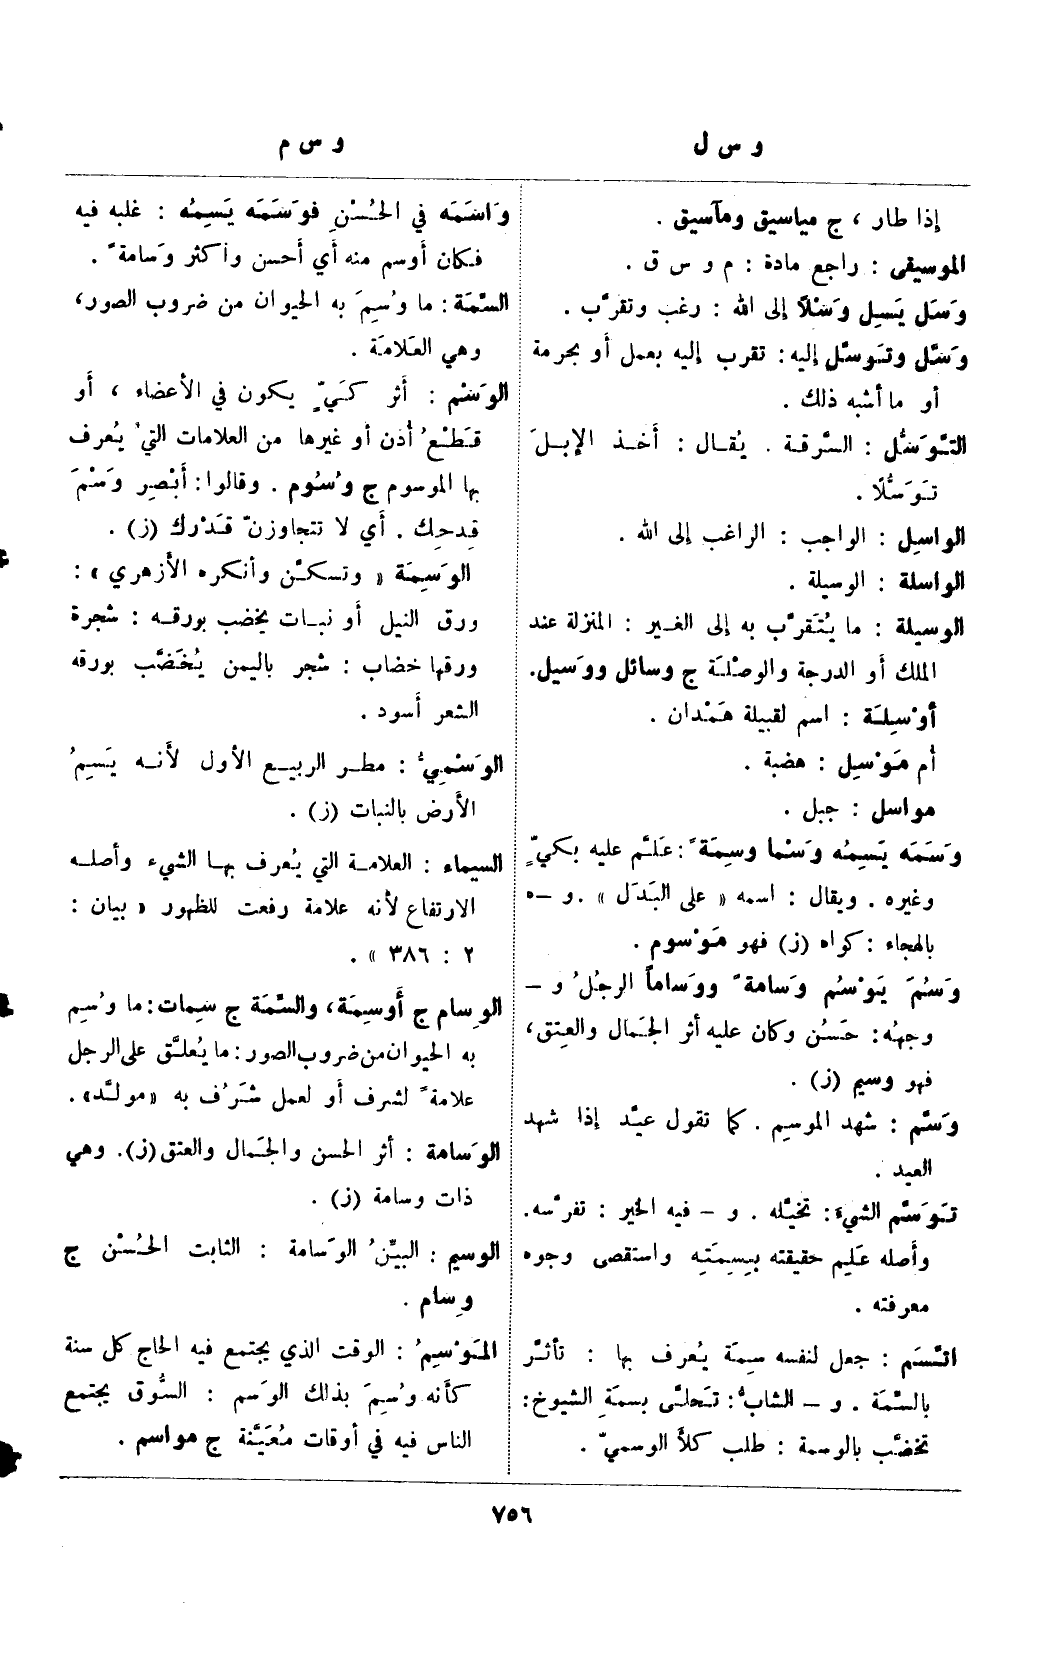 و س ل
و س م
إذا طار ، ج مياسيق ومآسيق .
الموسيقى : راجع مادة : م و س ق .
وَسَل يَسِل وَسْلاً إلى الله : رغب وتقرَّب .
وَسَّل وتَوسَّل إليه : تقرب إليه بعمل أو بحرمة
أو ما أشبه ذلك .
التَّوَسُّل : السَّرقة . يُقال : أخذ الإبلَ
تَوَسُّلًا .
الواسِل : الواجب : الراغب إلى الله .
الواسلة : الوسيلة .
الوسيلة : ما يُتَقرَّب به إلى الغير : المنزلة عند
الملك أو الدرجة والوصْلَة ج وسائل ووَسيل.
أوْسِلَة : اسم لقبيلة هَمْدان .
أم مَوْسِل : هضبة .
مواسل : جبل .
وَسَمَه يَسِمُه وَسْما وسِمَةً : عَلَّم عليه بكيٍّ
وغيره . ويقال : اسمه « على البَدَل » . و –ه
بالهجاء : كواه (ز) فهو مَوْسوم .
وَسُمَ يَوْسُم وَسامةً ووَساماً الرجُلُ و –
وجههُ : حَسُن وكان عليه أثر الجَمال والعِتق،
فهو وسيم (ز) .
وَسَّم : شهد الموسِم . كما تقول عيَّد إذا شهد
العيد .
تَوَسَّم الشيءَ : تخيَّله . و – فيه الخير : تفرَّسه.
وأصله عَلِم حقيقته بِسِمَتِه واستقصى وجوه
معرفته .
اتَّسَم : جعل لنفسه سِمَة يُعرف بها : تأثَّر
بالسِّمَة . و – الشابُّ : تَحلَّى بسمَةِ الشيوخ :
تخضَّب بالوسمة : طلب كلأ الوسميّ .
وَاسَمَه في الحُسْنِ فوَسَمَه يَسِمُه : غلبه فيه
فكان أوسم منه أي أحسن وأكثر وَسامةً .
السِّمَة : ما وُسِمَ به الحيوان من ضروب الصور،
وهي العَلامَة .
الوَسْم : أثر كَيٍّ يكون في الأعضاء ، أو
قَطْعُ أذن أو غيرها من العلامات التي يُعرف
بها الموسوم ج وُسُوم . وقالوا : أبْصِر وَسْمَ
قِدحِك . أي لا تتجاوزنّ قَدْرك (ز) .
الوَسِمَة « وتسكَّن وأنكره الأزهري » :
ورق النيل أو نبات يخضب بورقه : شجرة
ورقها خضاب : شجر باليمن يُخَضَّب بورقه
الشعر أسود .
الوَسْمِيُّ : مطر الربيع الأول لأنه يَسِمُ
الأرض بالنبات (ز) .
السيماء : العلامة التي يُعرف بها الشيء وأصله
الارتفاع لأنه علامة رفعت للظهور « بيان :
٢ : ٣٨٦ » .
الوِسام ج أوسِمَة، والسِّمَة ج سِمات : ما وُسِم
به الحيوان من ضروب الصور : ما يُعلَّق على الرجل
علامةً لشرف أو لعمل شَرُف به «مولَّد» .
الوَسامة : أثر الحسن والجَمال والعتق (ز). وهي
ذات وسامة (ز) .
الوسيم : البيِّنُ الوَسامة : الثابت الحُسْن ج
وِسام .
المَوْسِمُ : الوقت الذي يجتمع فيه الحاج كل سنة
كأنه وُسِمَ بذلك الوَسم : السُّوق يجتمع
الناس فيه في أوقات مُعَيَّنة ج مواسم .
٧٥٦